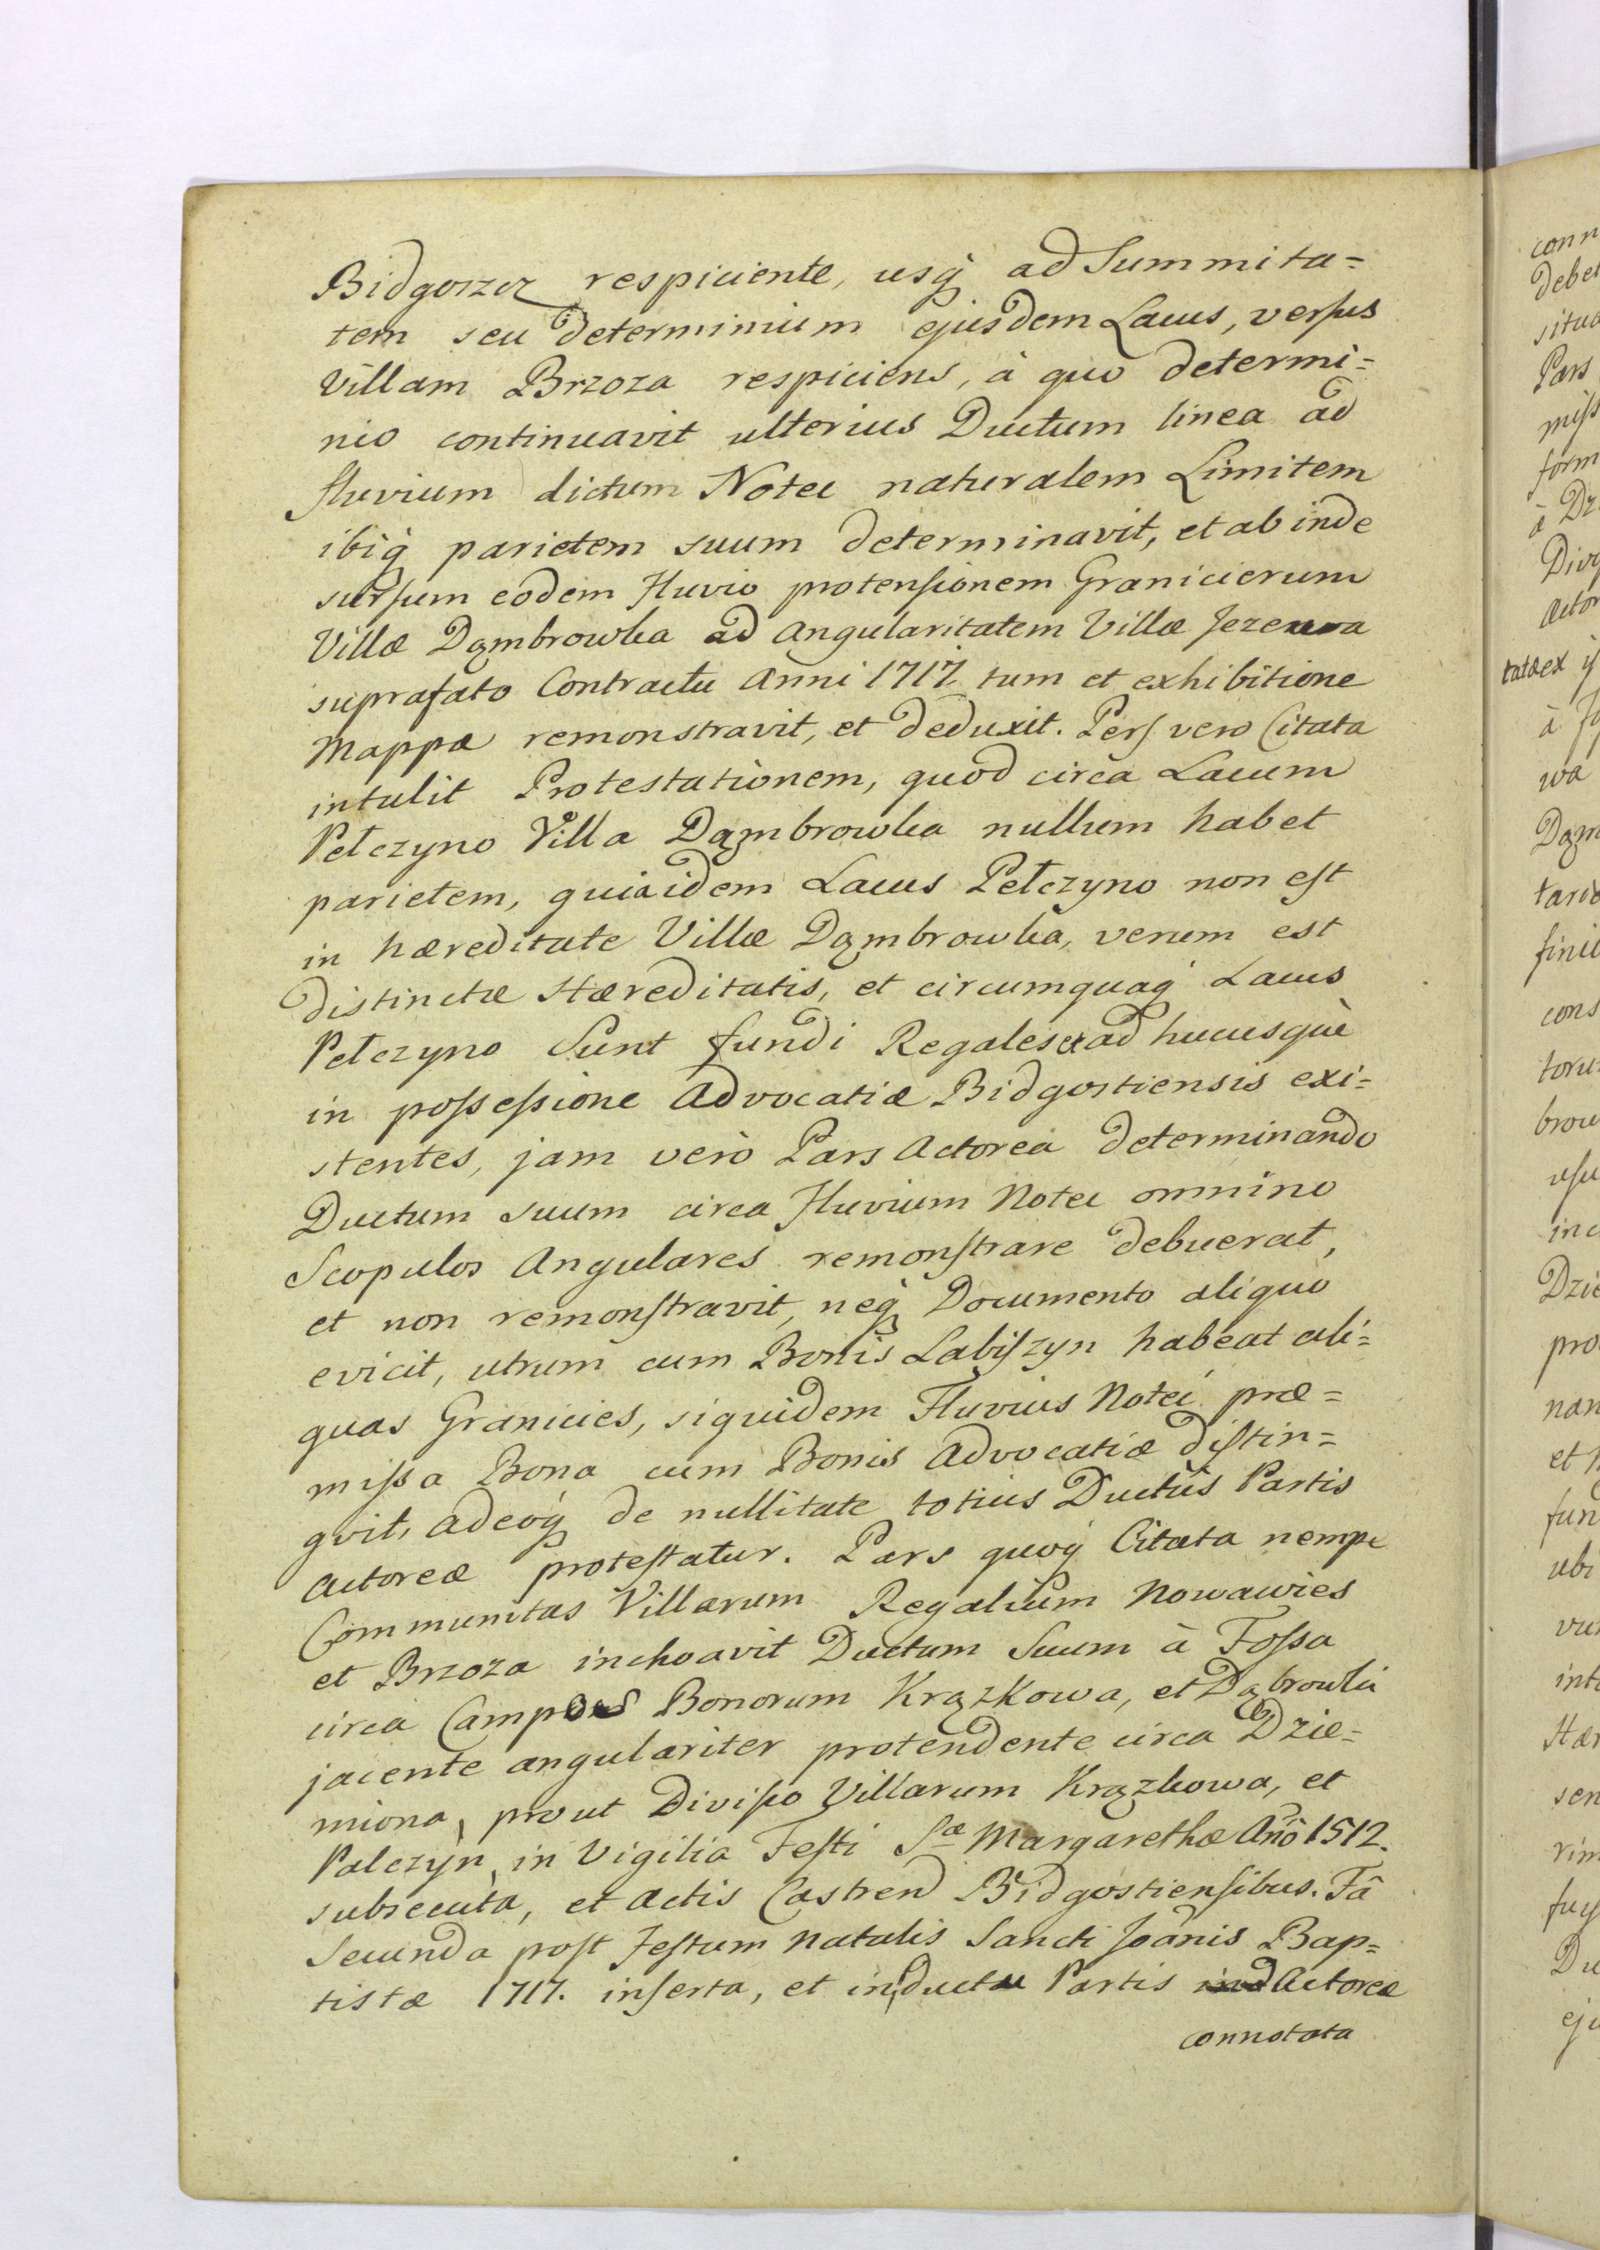 Bidgoszcz respiciente, usq̃ ad Summita=
tem seu determinium ejusdem Lacus, verſus
Villam Brzoza respiciens, à quò determi=
nio continuavit ulterius Ductum linea ad
fluvium dictum Noteć naturalem Limitem
ibiq̃ parietem suum determinavit, et ab inde
surſum eodem Fluvio protenſionem Granicierum
Villæ Dąmbrowka ad Angularitatem Villæ
suprafato Contractu Anni 1717 tum et exhibitione
Mappæ remonstravit, et deduxit. Pars vero Citata
intulit Protestationem, quod circa Lacum
Pełczyno Villa Dąmbrowka nullum habet
parietem, quia idem Lacus Pełczyno non eſt
in hæreditate Villæ Dąmbrowka, verum est
distinctæ Hæreditatis, et circumquaq̃ Lacus
Pełczyno Sunt fundi Regales et ad hucusquè
in poſseſsione Advocatiæ Bidgostiensis exi=
stentes, jam verò Pars Actorea determinando
Ductum suum circa Fluvium Noteć omnino
Scopulos Angulares remonſtrare debuerat,
et non remonſtravit, neq̃ Documento aliquò
evicit, utrum cum Bonis Labiſzyn habeat ali=
quas Granicies, siquidem Fluvius Noteć præ=
miſsa Bona cum Bonis Advocatiæ diſtin=
gvit, adeoq̃ de nullitate totius Ductûs Partis
Actoreæ proteſtatur. Pars quoq̃ Citata nempe
Communitas Villarum Regalium Nowawies
et Brzoza inchoavit Ductum Suum à Foſsa
circa Campos Bonorum Krązkowa, et Dąbrowka
jacente angulariter protendente circa Dzie=
miona, prout Diviſio Villarum Krązkowa, et
Palczyn, in Vigilia Feſti Sæ Margarethæ Anõ 1512.
subsecuta, et Actis Castren̄ Bidgostienſibus. Fã
Secunda poſt Feſtum Natalis Sancti Joãnis Bap=
tistæ 1717. inſerta, et in ductu Partis Actoreæ
connotata
conn
debet
situa
Pars
miſs
form
à Dz
Divi
Actor
tatæ ex
wa
Dąm
tari
finie
cons
toru
brow
uſu
inc
Dzie
pro
nan
et
fun
ubi
int
Hær
sen
rim
Du
eju